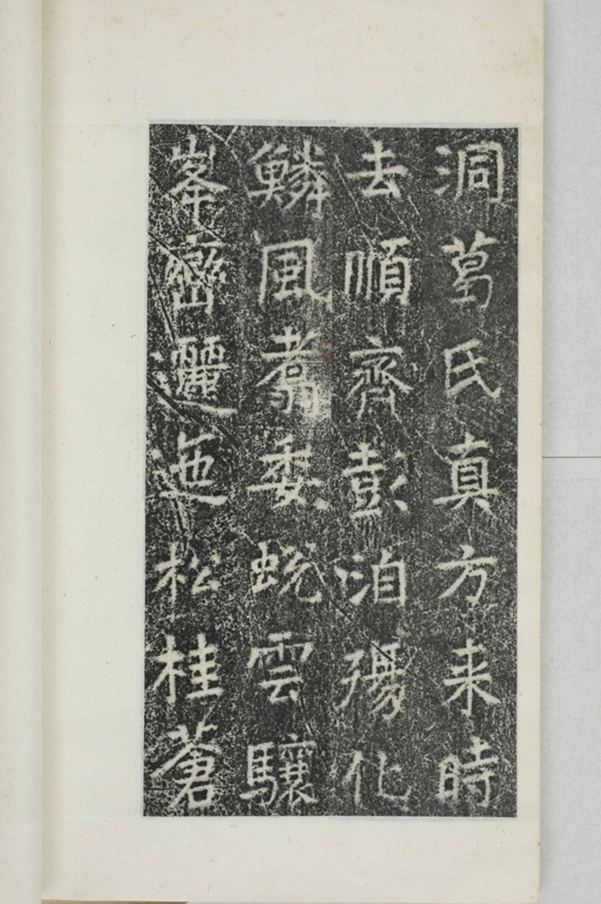 洞葛氏真方来時
去順齊彭泊殤化
鱗風翥委蛻雲驤
峯巒邐迤松桂蒼